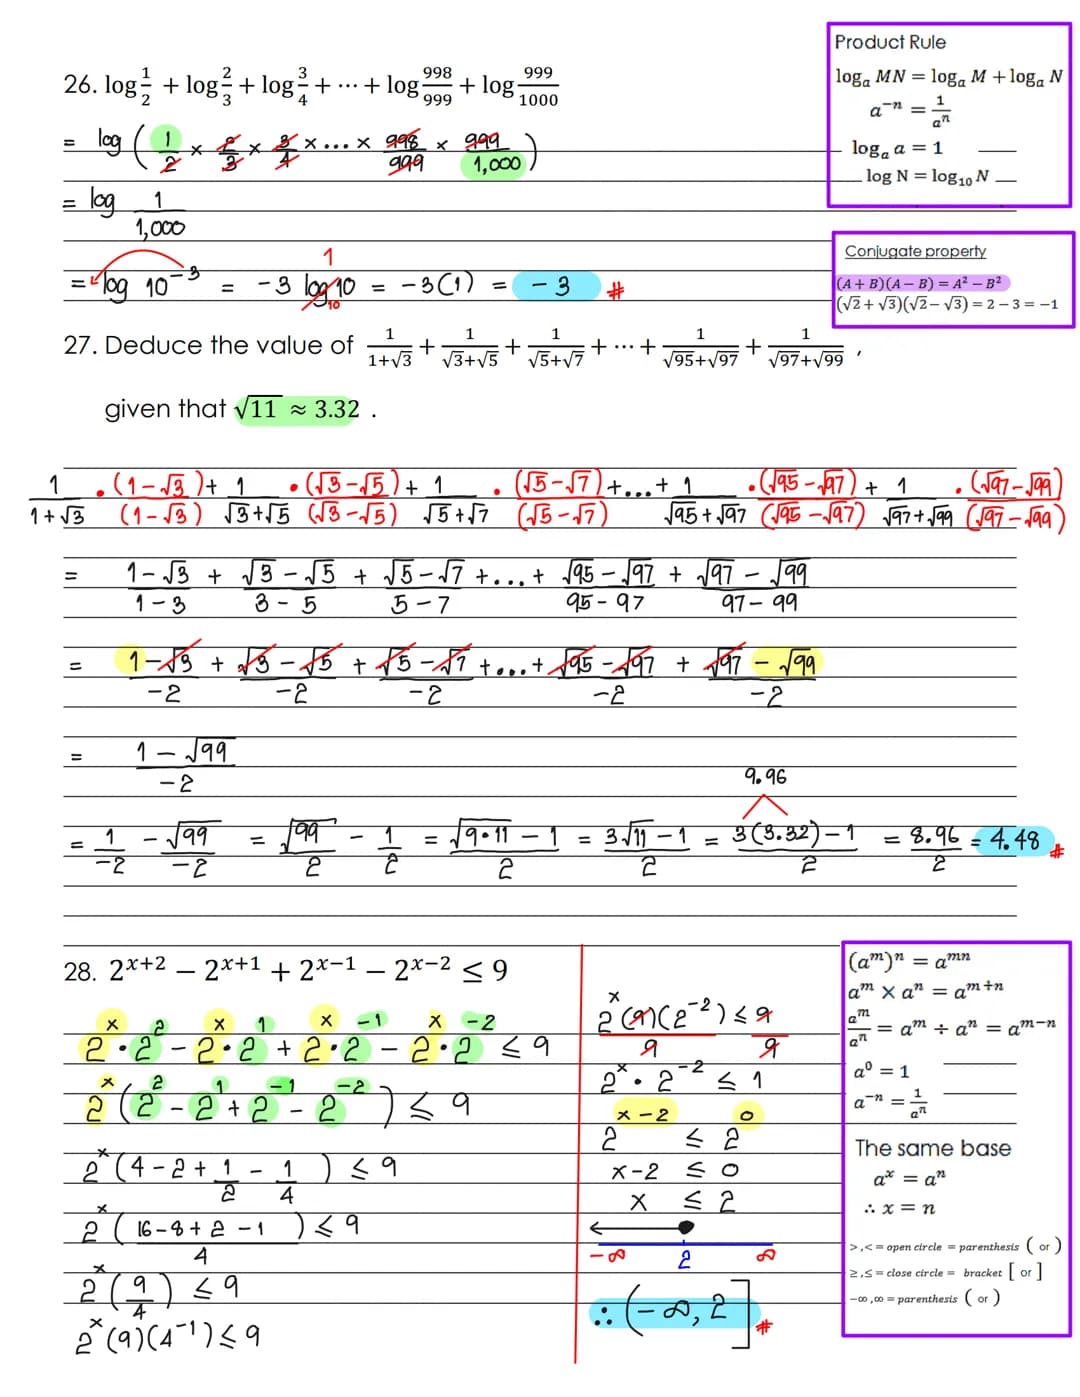 Product Rule
logₐ MN = logₐ M + logₐ N
a⁻ⁿ = 1/aⁿ
logₐ a = 1
log N = log₁₀ N
26. log 1/2 + log 2/3 + log 3/4 + ⋯ + log 998/999 + log 999/1000
= log ( 1/2 × 2/3 × 3/4 × ... × 998/999 × 999/1,000 )
= log 1/1,000
= log 10⁻³ = -3 log₁₀ 10 1 = -3(1) = -3 #
Conjugate property
(A + B)(A − B) = A² − B²
(√2 + √3)(√2 − √3) = 2 − 3 = −1
27. Deduce the value of 1/(1+√3) + 1/(√3+√5) + 1/(√5+√7) + ⋯ + 1/(√95+√97) + 1/(√97+√99) ,
given that √11 ≈ 3.32 .
1/(1+√3) • (1-√3)/(1-√3) + 1/(√3+√5) • (√3-√5)/(√3-√5) + 1/(√5+√7) • (√5-√7)/(√5-√7) +...+ 1/(√95+√97) • (√95-√97)/(√95-√97) + 1/(√97+√99) • (√97-√99)/(√97-√99)
= (1-√3)/(1-3) + (√3-√5)/(3-5) + (√5-√7)/(5-7) +...+ (√95-√97)/(95-97) + (√97-√99)/(97-99)
= (1-√3)/-2 + (√3-√5)/-2 + (√5-√7)/-2 +...+ (√95-√97)/-2 + (√97-√99)/-2
= (1-√99)/-2
9.96
= 1/-2 - √99/-2 = √99/2 - 1/2 = (√9•11 - 1)/2 = (3√11 - 1)/2 = (3(3.32)-1)/2 = 8.96/2 = 4.48 #
28. 2ˣ⁺² − 2ˣ⁺¹ + 2ˣ⁻¹ − 2ˣ⁻² ≤ 9
2ˣ•2² - 2ˣ•2¹ + 2ˣ•2⁻¹ - 2ˣ•2⁻² ≤ 9
2ˣ(2² - 2¹ + 2⁻¹ - 2⁻²) ≤ 9
2ˣ(4 - 2 + 1/2 - 1/4) ≤ 9
2ˣ((16 - 8 + 2 - 1)/4) ≤ 9
2ˣ(9/4) ≤ 9
2ˣ(9)(4⁻¹) ≤ 9
2ˣ(9)(2⁻²)/9 ≤ 9/9
2ˣ•2⁻² ≤ 1
2ˣ⁻² ≤ 2⁰
x-2 ≤ 0
x ≤ 2
-∞ 2 ∞
∴ (-∞, 2] #
(aᵐ)ⁿ = aᵐⁿ
aᵐ × aⁿ = aᵐ⁺ⁿ
aᵐ/aⁿ = aᵐ ÷ aⁿ = aᵐ⁻ⁿ
a⁰ = 1
a⁻ⁿ = 1/aⁿ
The same base
aˣ = aⁿ
∴ x = n
>,< = open circle = parenthesis ( or )
≥,≤ = close circle = bracket [ or ]
−∞,∞ = parenthesis ( or )